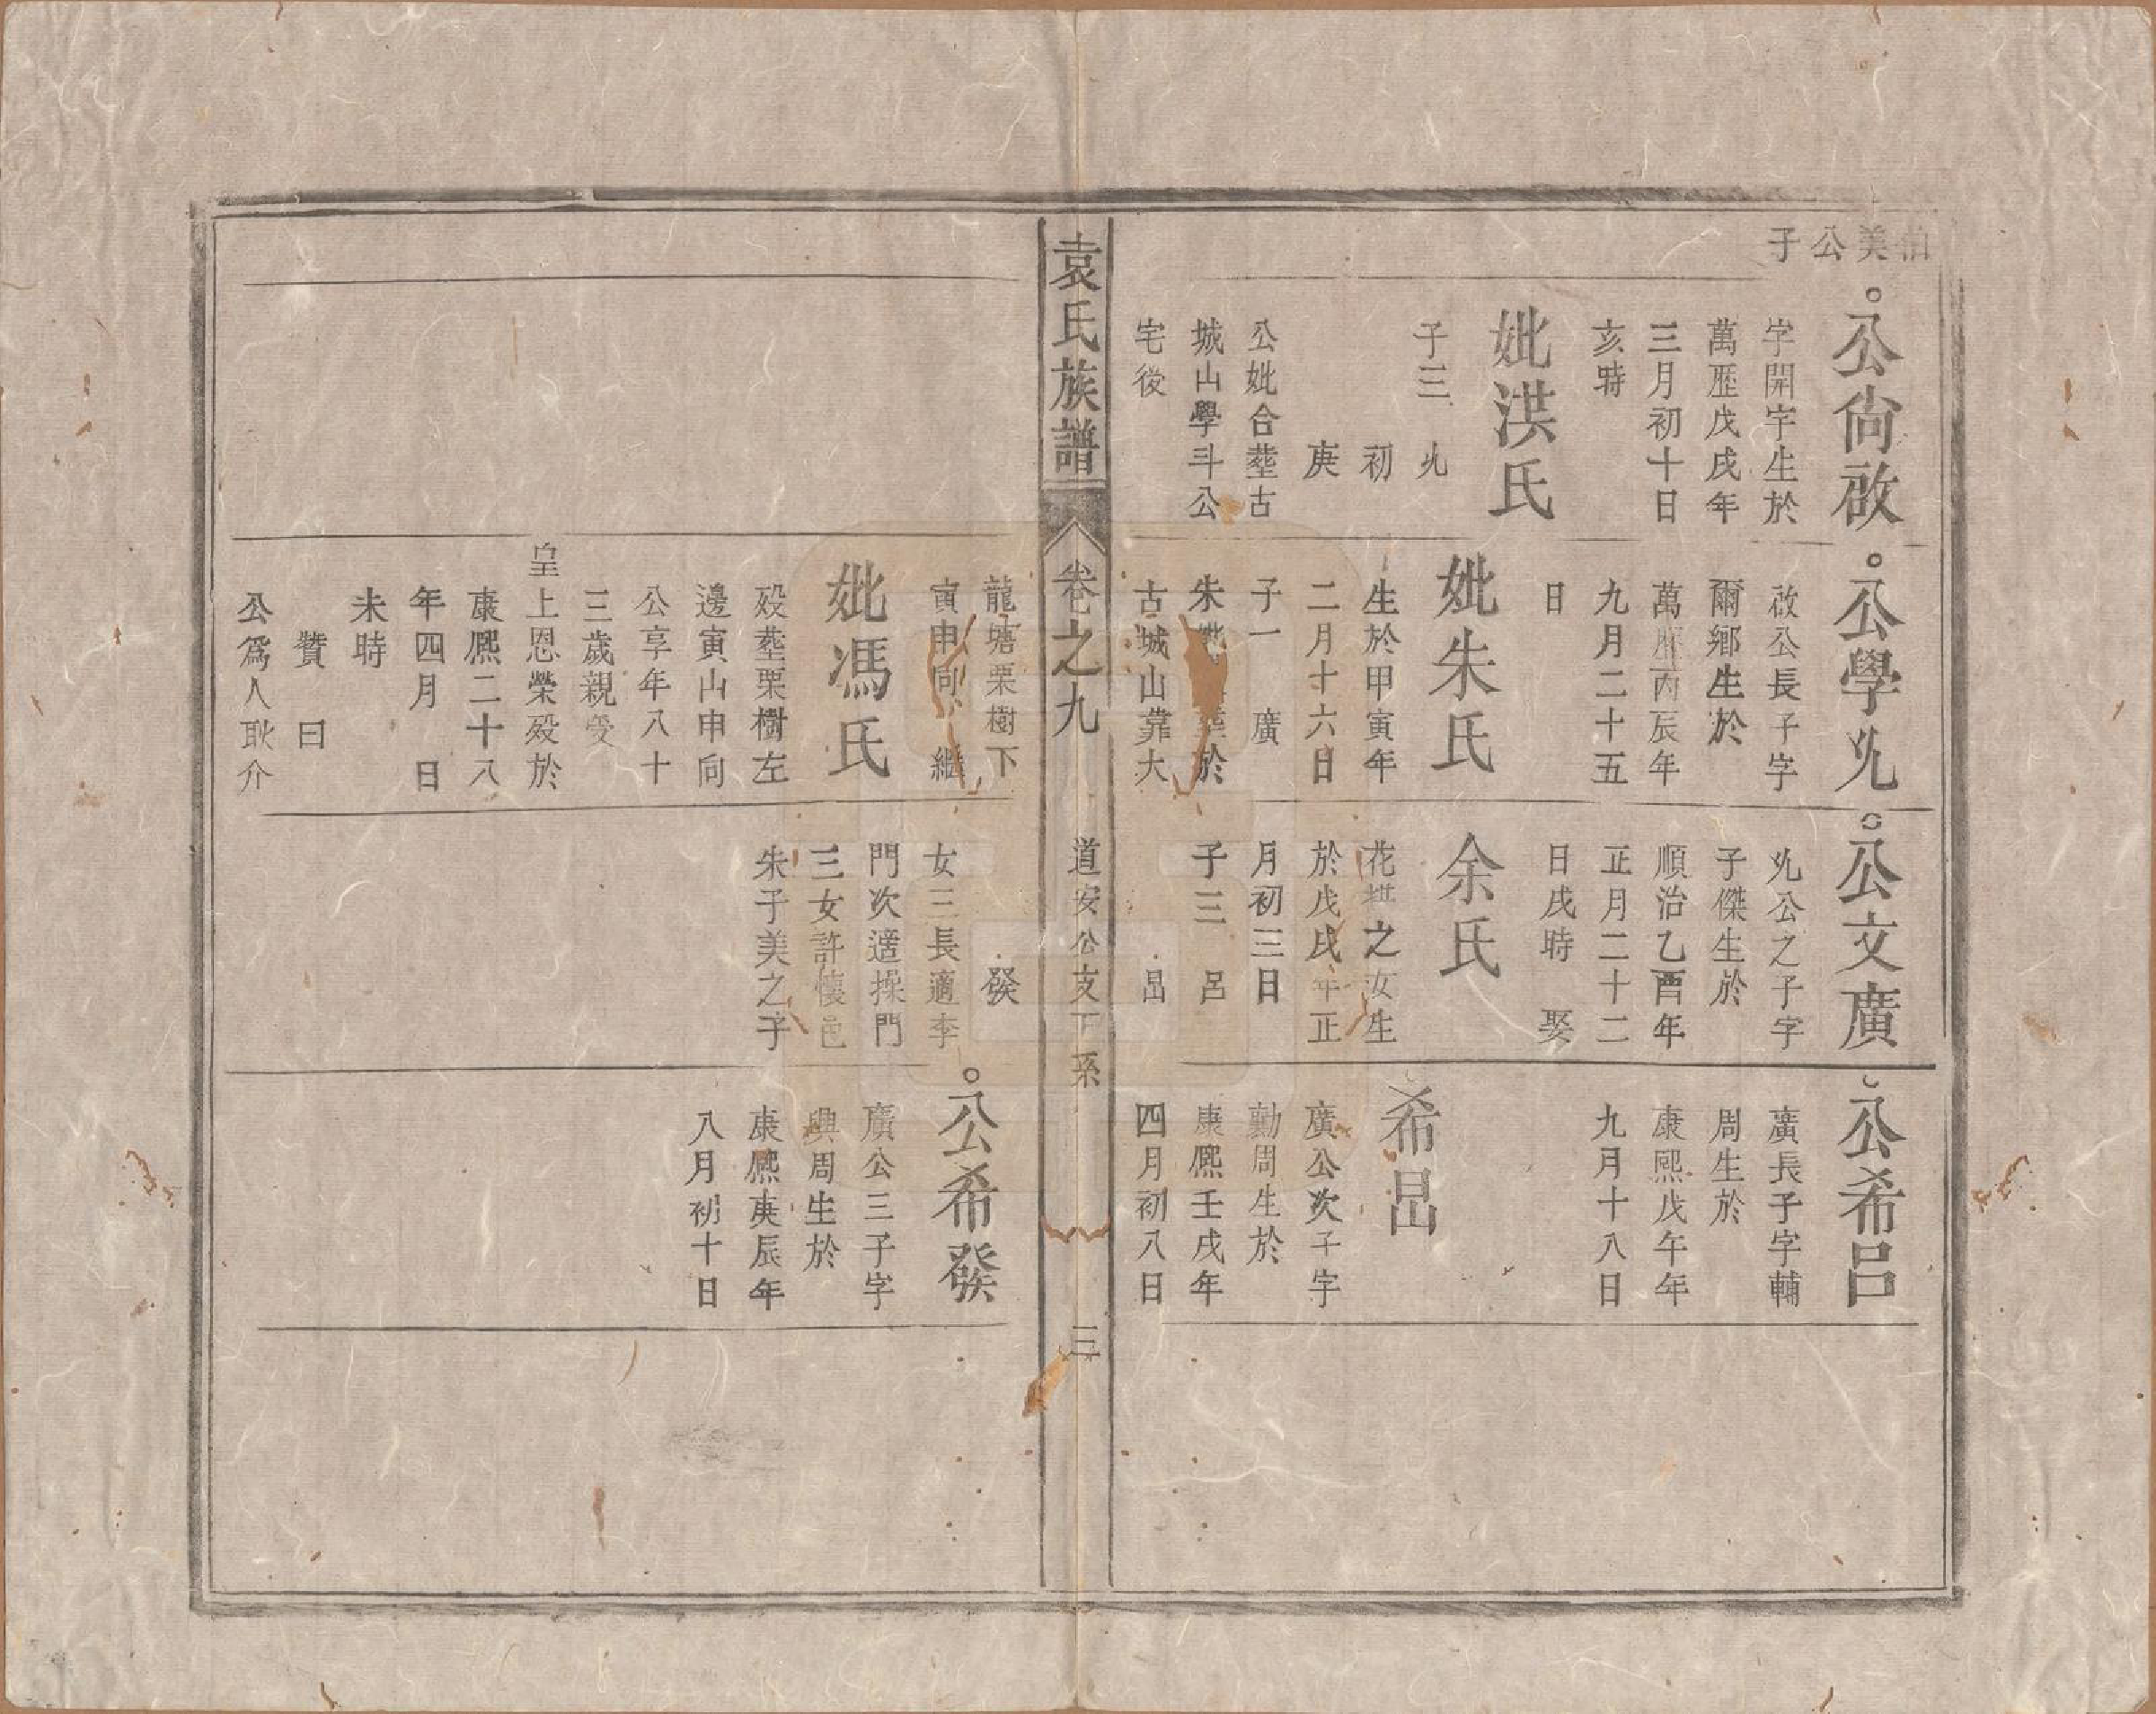 伯美公子
公尙啟
字開宇生於
萬歷戊戌年
三月初十日
亥時
妣洪氏
子三 𠒇
初
庚
公妣合塟古
城山學斗公
宅後
公學𠒇
啟公長子字
爾鄉生於
萬歷丙辰年
九月二十五
日
妣朱氏
生於甲寅年
二月十六日
子一 廣
朱妣 塟於
古城山靠大
公文廣
𠒇公之子字
子傑生於
順治乙酉年
正月二十二
日戌時 娶
余氏
花 之女生
於戊戌年正
月初三日
子三 呂
昌
公希呂
廣長子字輔
周生於
康熙戊午年
九月十八日
希昌
廣公次子字
勷周生於
康熈壬戌年
四月初八日
袁氏族譜
卷之九
道安公支下系
三
龍塘栗樹下
寅申向 繼
妣馮氏
歿塟栗樹左
邊寅山申向
公享年八十
三歲親受
皇上恩榮歿於
康熈二十八
年四月 日
未時
贊曰
公爲人耿介
發
女三長適李
門次適操門
三女許懷邑
朱子美之子
公希發
廣公三子字
興周生於
康熈庚辰年
八月初十日